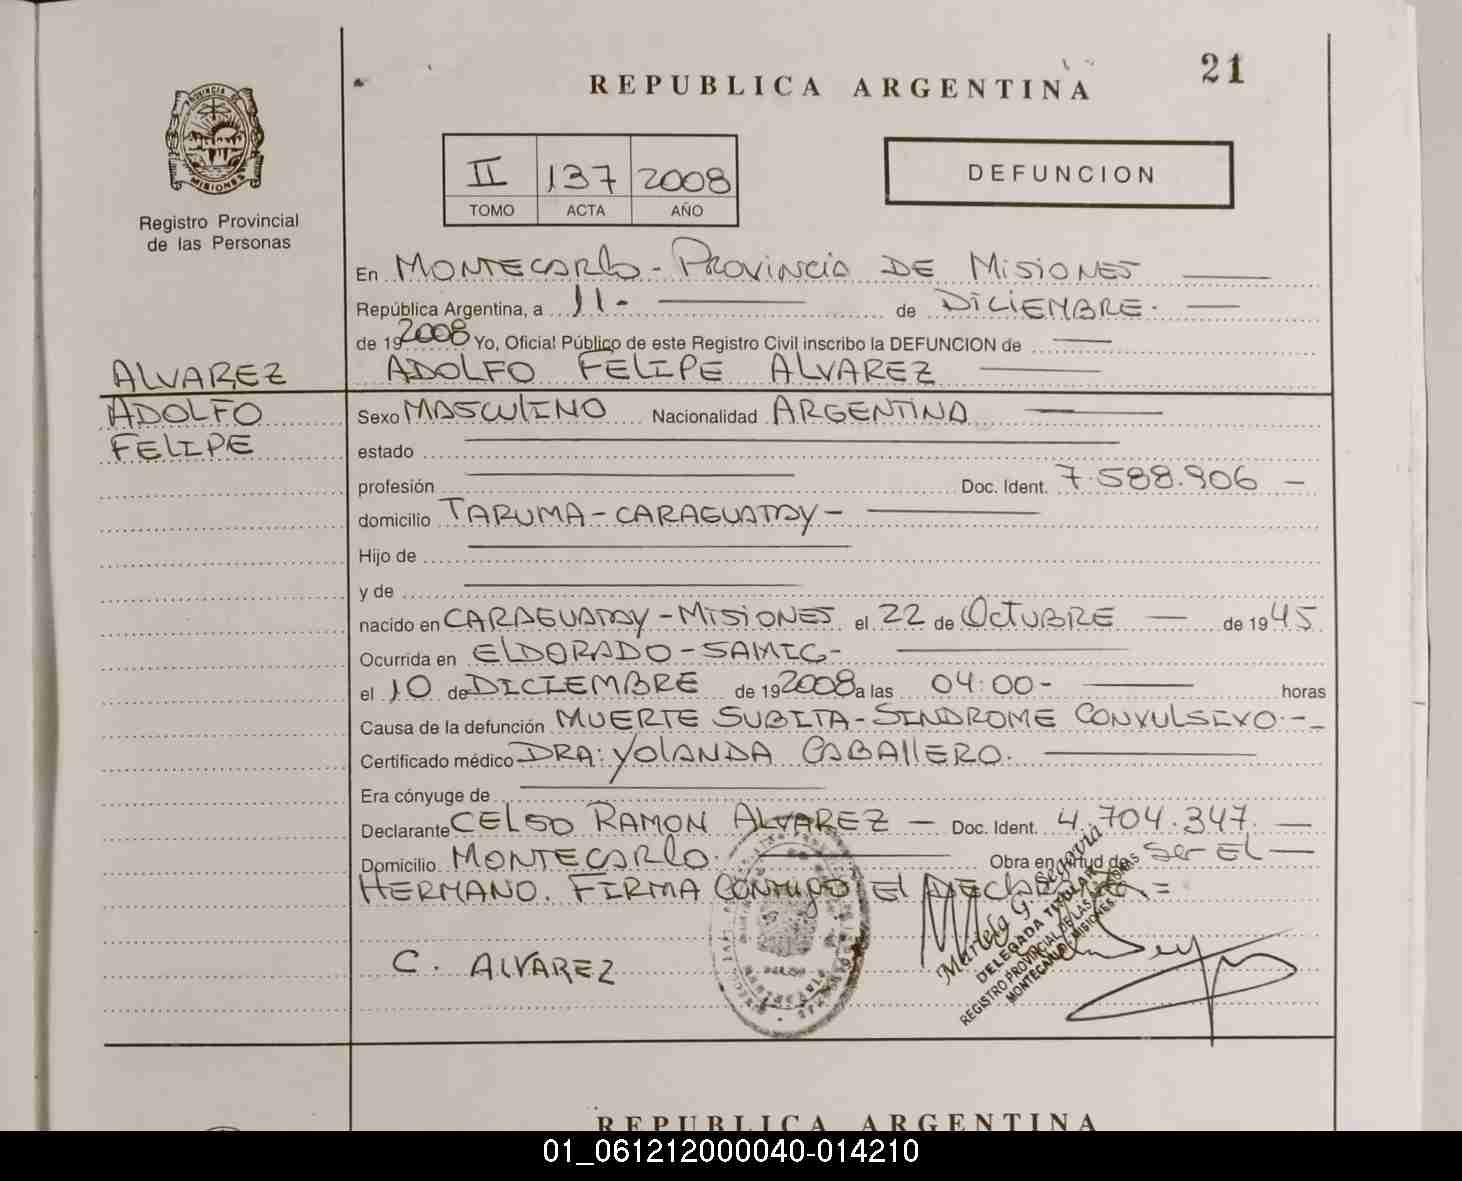 21
REPUBLICA ARGENTINA
PROVINCIA DE
MISIONES
Registro Provincial
de las Personas
II 137 2008
TOMO ACTA AÑO
DEFUNCION
En MONTECARLO - PROVINCIA DE MISIONES
República Argentina, a 11- de DICIEMBRE.
de 19 2008 Yo, Oficial Público de este Registro Civil inscribo la DEFUNCION de
ALVAREZ
ADOLFO FELIPE ALVAREZ
ADOLFO
FELIPE
Sexo MASCULINO Nacionalidad ARGENTINA
estado
profesión Doc. Ident. 7.588.906 -
domicilio TARUMA - CARAGUATAY -
Hijo de
y de
nacido en CARAGUATAY - MISIONES el 22 de OCTUBRE de 19 45
Ocurrida en ELDORADO - SAMIC -
el 10 de DICIEMBRE de 19 2008 a las 04:00 - horas
Causa de la defunción MUERTE SUBITA - SINDROME CONVULSIVO. - -
Certificado médico DRA: YOLANDA CABALLERO.
Era cónyuge de
Declarante CELSO RAMON ALVAREZ - Doc. Ident. 4.704.347. -
Domicilio MONTECARLO. Obra en virtud de SER EL -
HERMANO. FIRMA CONMIGO EL DECLARANTE. =
C. ALVAREZ
Mariela G. Segovia
DELEGADA TITULAR
REGISTRO PROVINCIAL DE LAS PERSONAS
MONTECARLO - MISIONES
REPUBLICA ARGENTINA
01_061212000040-014210